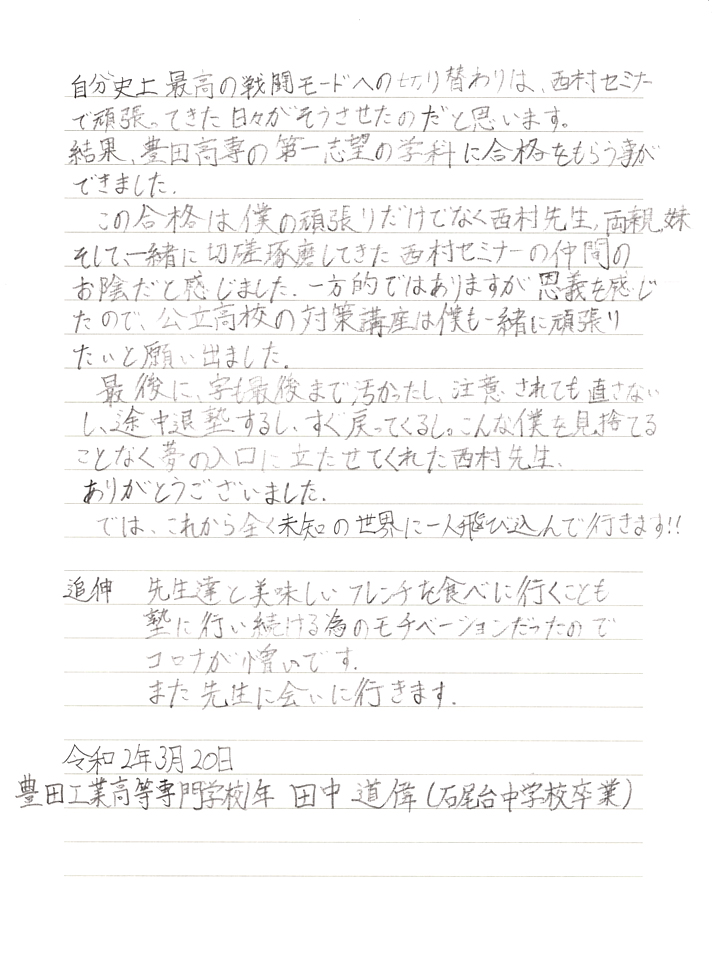 自分史上最高の戦闘モードへの切り替わりは、西村セミナー
で頑張ってきた日々がそうさせたのだと思います。
結果、豊田高専の第一志望の学科に合格をもらう事が
できました.
この合格は僕の頑張りだけでなく西村先生,両親,妹
そして、一緒に切磋琢磨してきた西村セミナーの仲間の
お陰だと感じました.一方的ではありますが恩義を感じ
たので、公立高校の対策講座は僕も一緒に頑張り
たいと願い出ました.
最後に、字も最後まで汚かったし、注意されても直さない
し、途中退塾するし、すぐ戻ってくるし。こんな僕を見捨てる
ことなく夢の入口に立たせてくれた西村先生、
ありがとうございました.
では、これから全く未知の世界に一人飛び込んで行きます!!
追伸 先生達と美味しいフレンチを食べに行くことも
塾に行い続ける為のモチベーションだったので
コロナが憎いです.
また先生に会いに行きます.
令和2年3月20日
豊田工業高等専門学校1年 田中 道偉(石尾台中学校卒業)